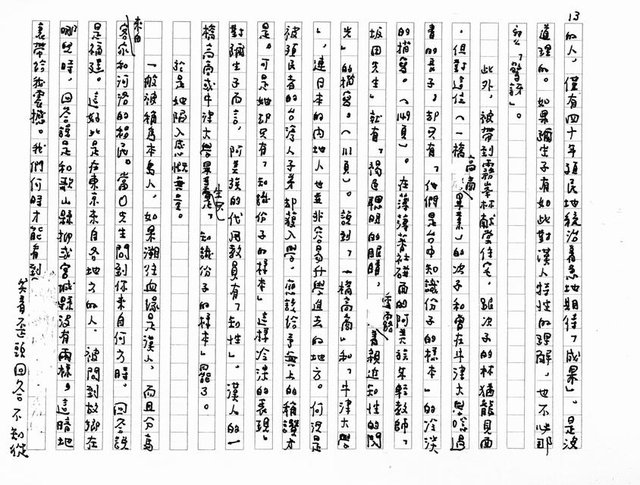 13
的人，僅有四十年殖民地統治着急地期待了「成果」。是沒
道理的。如果彌生子有如此對漢人特性的理解，也不必那
「驚訝」。
此外，被帶到霧峯林獻堂住宅，跟次子的林猶龍見面
，但對這位（一橋高商畢業）的次子和曾在牛津大學唸過
書的長子，却只有「他們是台中知識份子的樣本」的冷淡
的描寫。（149頁）。在薄薄著社磚面的阿美族年輕教師，
坂田先生」就有「褐色聰明的眼睛，透露着親近知性的閃
光」的描寫。（111頁）。說到「一橋高商」和「牛津大學
」，連日本的內地人也並非容易升學進去的地方。何況是
被殖民者的台灣人子弟却能入學，應該給予無上的稱讚才
是。可是她却只有「知識份子的樣本」這樣冷淡的表現。
對彌生子而言，阿美族的代用教員有「知性」，漢人的一
橋高商或牛津大學畢業生是「知識份子的樣本」罷了。
於是她陷入感慨無量。
一般被稱為本島人，如果溯往血緣是漢人，而且分為
客家和河洛的移民。當日先生問到你來自何方時，回答說
是福建。這好比是在東京來自各地方的人，被問到故鄉在
哪兒時，回答說是和歌山縣抑或宮城縣沒有兩樣。這暗地
裏帶給我震撼。我們何時才能看到
笑着歪頭回答不知從